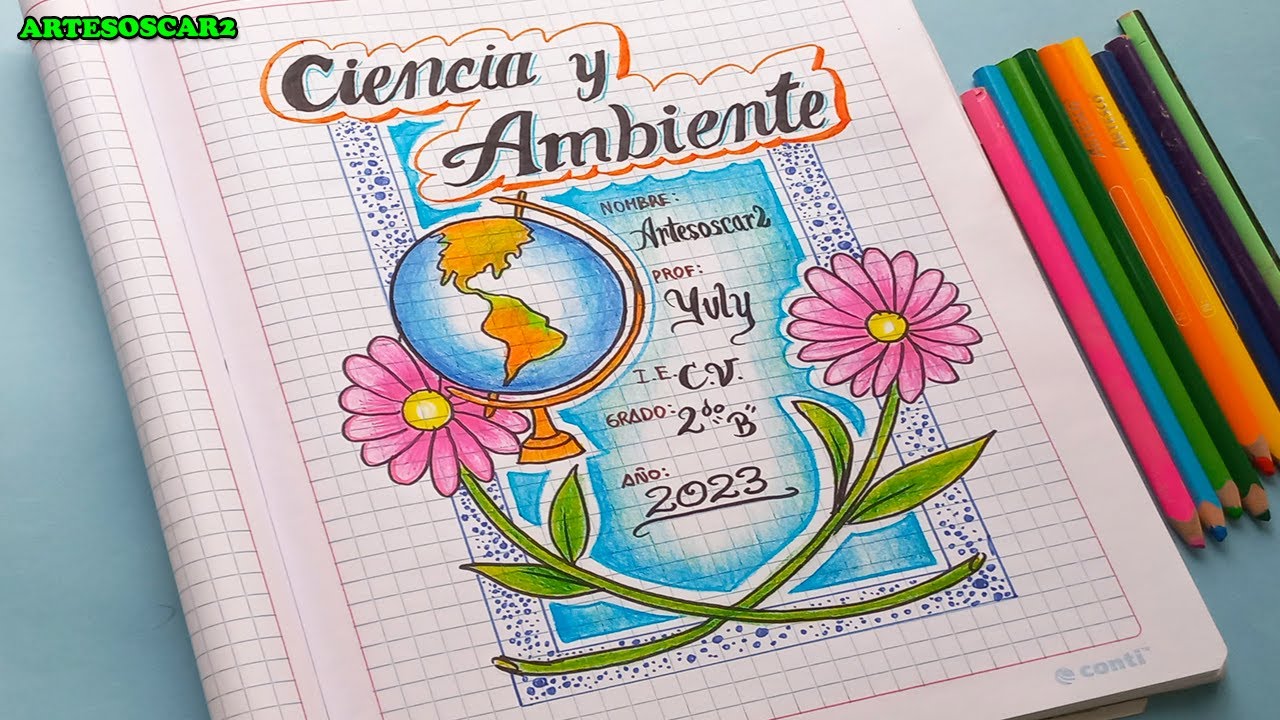 ARTESOSCAR2
Ciencia y
Ambiente
NOMBRE:
Artesoscar2
PROF:
Yuly
I.E. C.V.
GRADO: 2do "B"
AÑO:
2023
conti™